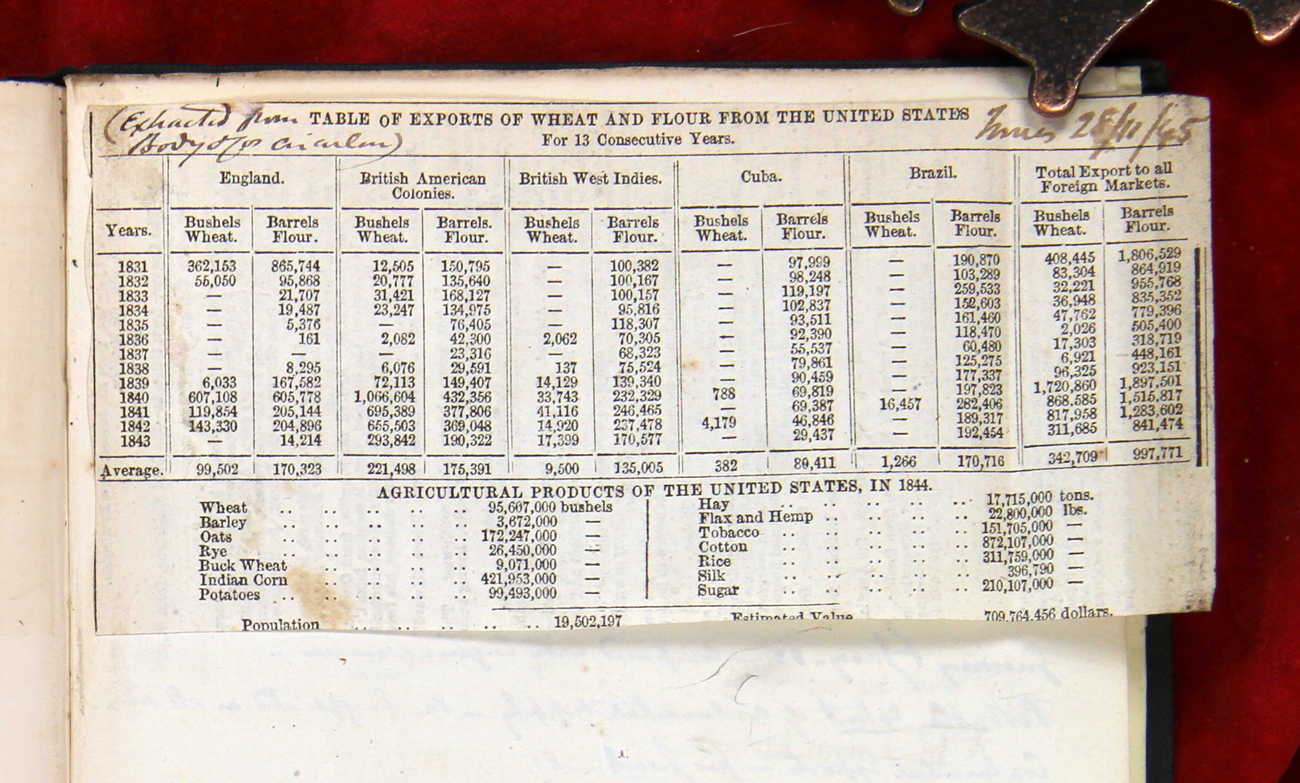 (Extracted from TABLE OF EXPORTS OF WHEAT AND FLOUR FROM THE UNITED STATES Times 28/11/45
Body of circular) For 13 Consecutive Years.
England. British American Colonies. British West Indies. Cuba. Brazil. Total Export to all Foreign Markets.
Years. Bushels Wheat. Barrels Flour. Bushels Wheat. Barrels. Flour. Bushels Wheat. Barrels Flour. Bushels Wheat. Barrels Flour. Bushels Wheat. Barrels Flour. Bushels Wheat. Barrels Flour.
1831 362,153 865,744 12,505 150,795 — 100,382 — 97,999 — 190,870 408,445 1,806,529
1832 55,050 95,868 20,777 135,640 — 100,167 — 98,248 — 103,289 83,304 864,919
1833 — 21,707 31,421 168,127 — 100,157 — 119,197 — 259,533 32,221 955,768
1834 — 19,487 23,247 134,975 — 95,816 — 102,837 — 152,603 36,948 835,352
1835 — 5,376 — 76,405 — 118,307 — 93,511 — 161,460 47,762 779,396
1836 — 161 2,082 42,300 2,062 70,305 — 92,390 — 118,470 2,026 505,400
1837 — — — 23,316 — 68,323 — 55,537 — 60,480 17,303 318,719
1838 — 8,295 6,076 29,591 137 75,524 — 79,861 — 125,275 6,921 448,161
1839 6,033 167,582 72,113 149,407 14,129 139,340 — 90,459 — 177,337 96,325 923,151
1840 607,108 605,778 1,066,604 432,356 33,743 232,329 788 69,819 — 197,823 1,720,860 1,897,501
1841 119,854 205,144 695,389 377,806 41,116 246,465 — 69,387 16,457 282,406 868,585 1,515,817
1842 143,330 204,896 655,503 369,048 14,920 237,478 4,179 46,846 — 189,317 817,958 1,283,602
1843 — 14,214 293,842 190,322 17,399 170,577 — 29,437 — 192,454 311,685 841,474
Average. 99,502 170,323 221,498 175,391 9,500 135,005 382 80,411 1,266 170,716 342,709 997,771
AGRICULTURAL PRODUCTS OF THE UNITED STATES, IN 1844.
Wheat .. .. .. .. .. 95,607,000 bushels
Barley .. .. .. .. .. 3,672,000 —
Oats .. .. .. .. .. 172,247,000 —
Rye .. .. .. .. .. 26,450,000 —
Buck Wheat .. .. .. .. 9,071,000 —
Indian Corn .. .. .. .. 421,953,000 —
Potatoes .. .. .. .. .. 99,493,000 —
Hay .. .. .. .. .. 17,715,000 tons.
Flax and Hemp .. .. .. .. 22,800,000 lbs.
Tobacco .. .. .. .. .. 151,705,000 —
Cotton .. .. .. .. .. 872,107,000 —
Rice .. .. .. .. .. 311,759,000 —
Silk .. .. .. .. .. 396,790 —
Sugar .. .. .. .. .. 210,107,000 —
Population .. .. .. .. .. 19,502,197 Estimated Value 709,764,456 dollars.